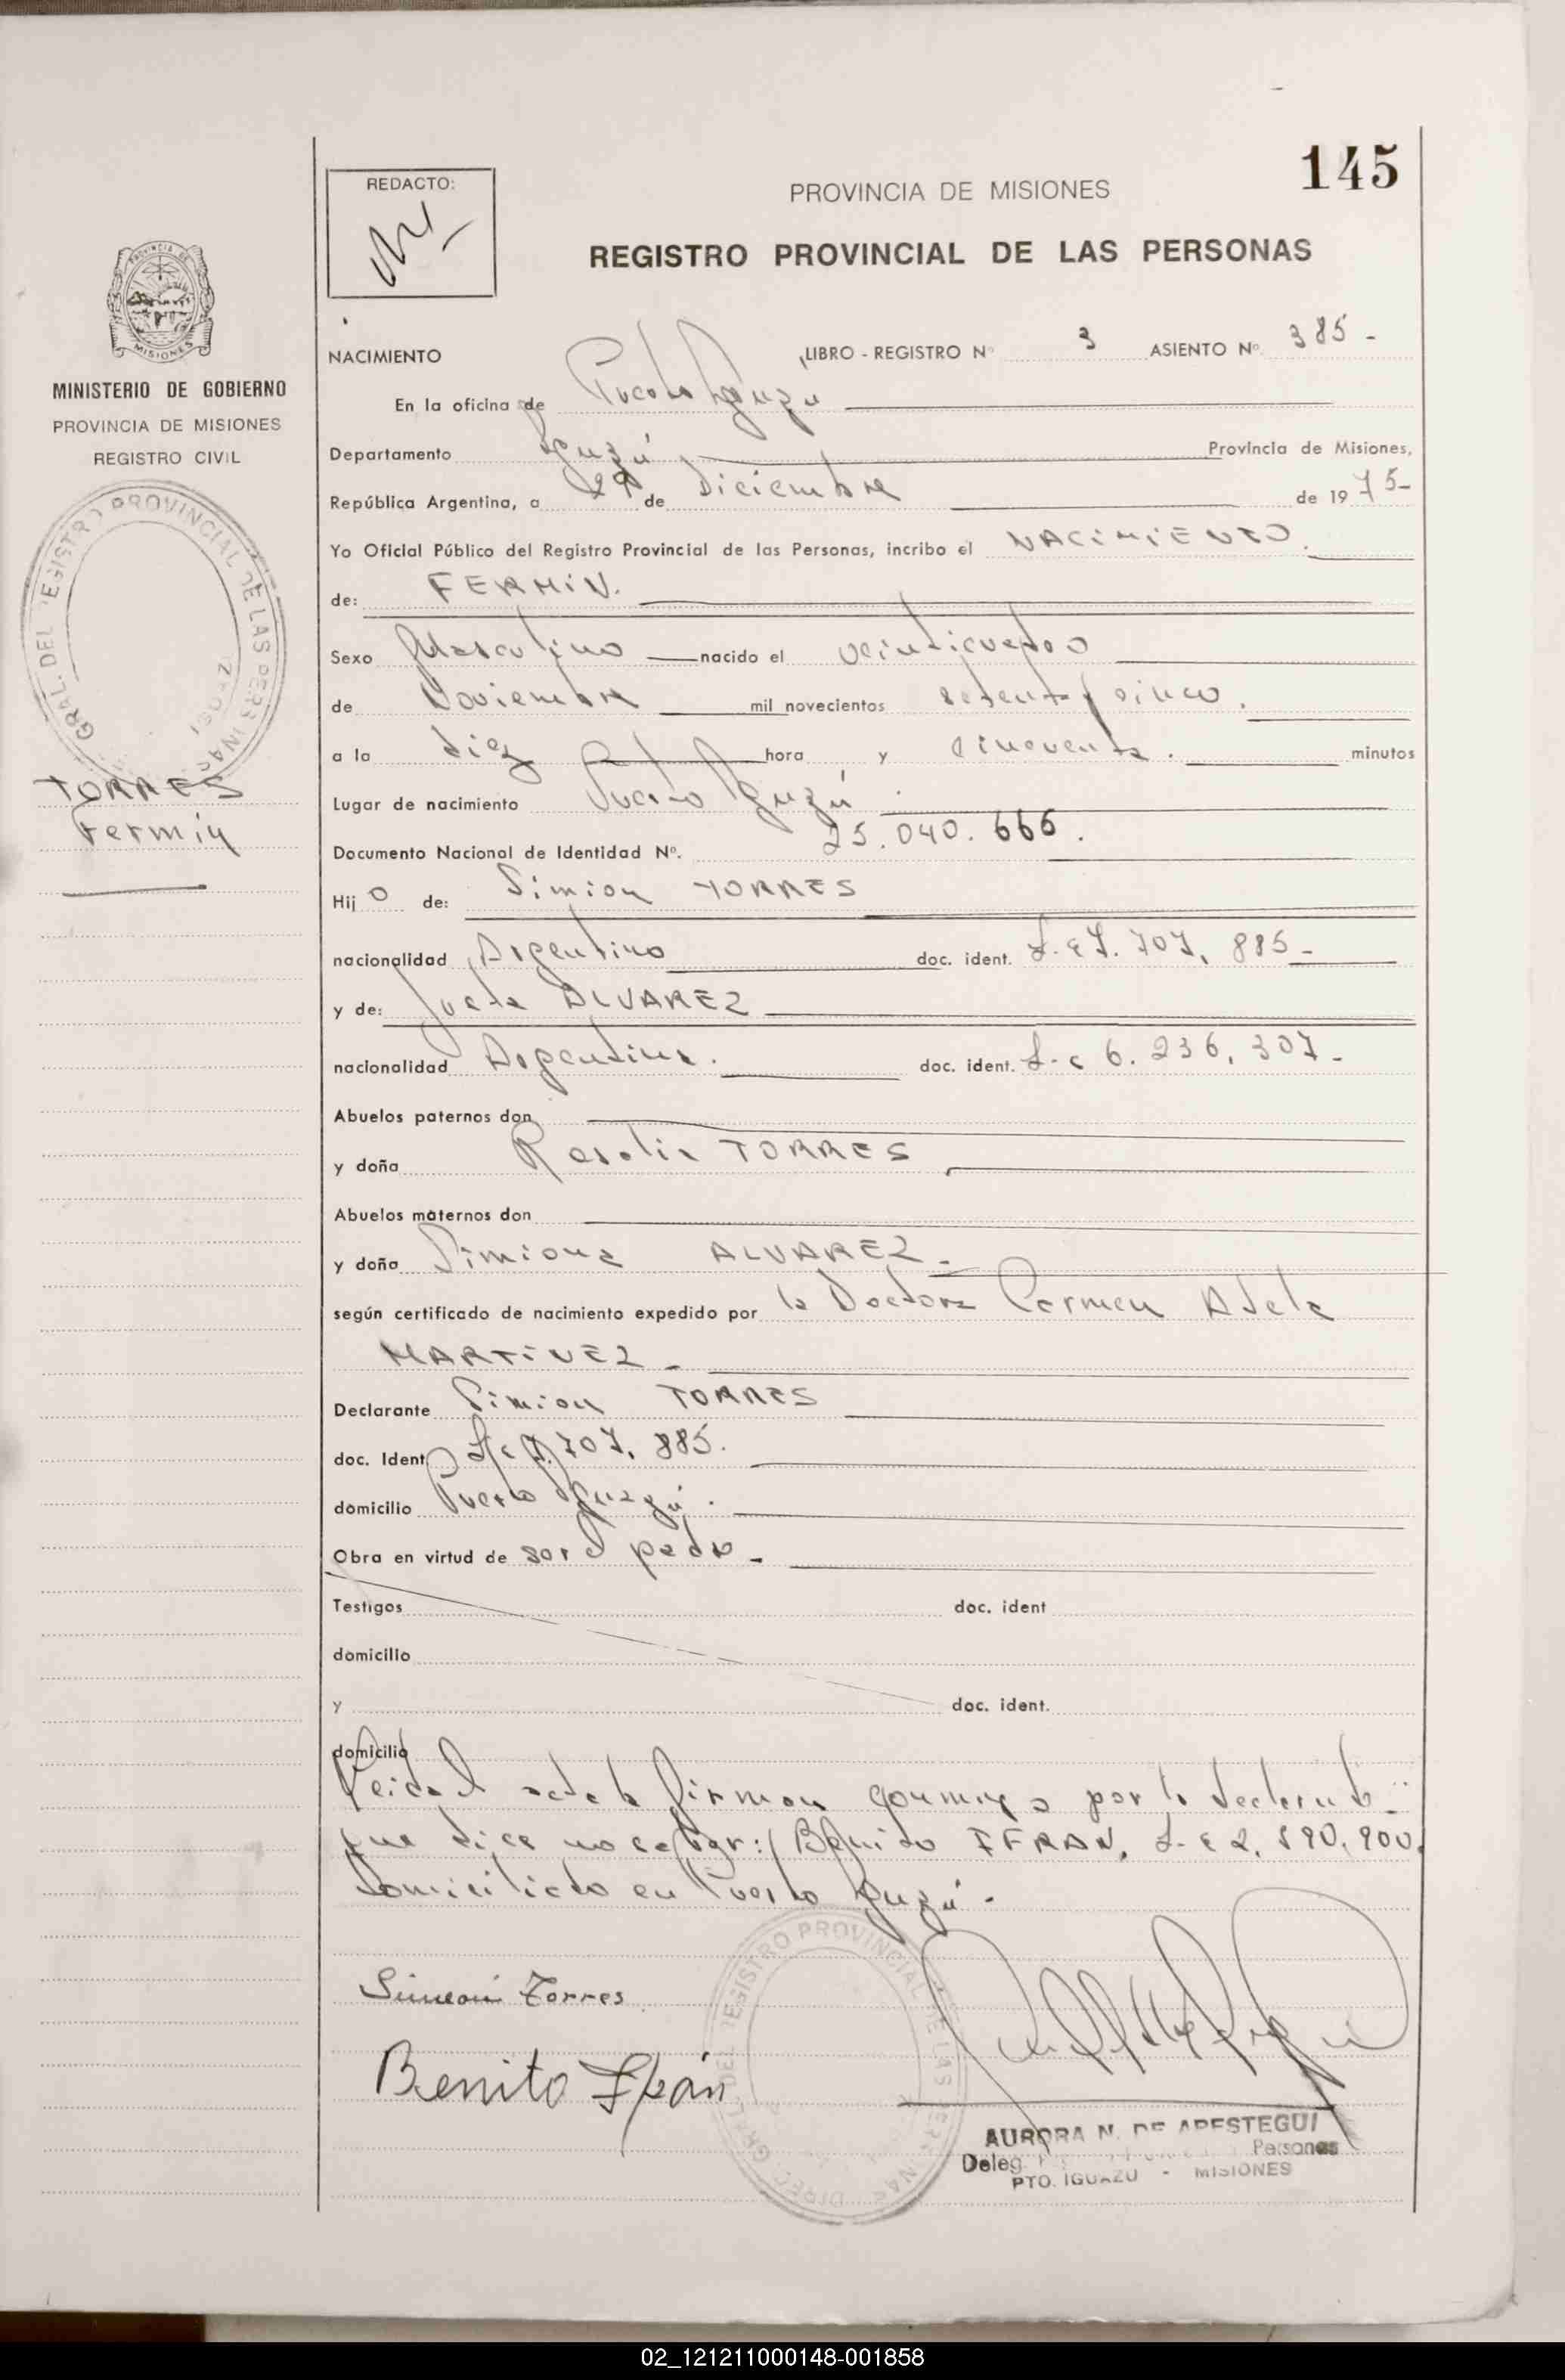 145
REDACTO:
PROVINCIA DE MISIONES
REGISTRO PROVINCIAL DE LAS PERSONAS
PROVINCIA DE
MISIONES
MINISTERIO DE GOBIERNO
PROVINCIA DE MISIONES
REGISTRO CIVIL
GRAL. DEL REGISTRO PROVINCIAL DE LAS PERS
TORRES
Fermin
NACIMIENTO LIBRO - REGISTRO Nº 3 ASIENTO Nº 385 -
En la oficina de Puerto Iguazu
Departamento Iguazú Provincia de Misiones,
República Argentina, a 29 de Diciembre de 1975-
Yo Oficial Público del Registro Provincial de las Personas, incribo el NACIMIENTO.
de: FERMIN.
Sexo Masculino nacido el veinticuatro
de Noviembre mil novecientos setenta y cinco.
a la diez hora y cincuenta. minutos
Lugar de nacimiento Puerto Iguazú.
Documento Nacional de Identidad Nº. 25.040.666.
Hijo de: Simion TORRES
nacionalidad Argentino doc. ident. L.E 7.707.885-
y de: Juana ALVAREZ
nacionalidad Argentina. doc. ident. L.C 6.236.307-
Abuelos paternos don
y doña Rosalia TORRES
Abuelos maternos don
y doña Simiona ALVAREZ-
según certificado de nacimiento expedido por la Doctora Carmen Adela
MARTINEZ-
Declarante Simion TORRES
doc. Ident L.E 7.707.885.
domicilio Puerto Iguazú.
Obra en virtud de ser el padre-
Testigos doc. ident
domicilio
y doc. ident.
domicilio
Leida el acta la firman conmigo por la declarante
que dice no Benito IFRAN. L.E 2.890.900.
Domiciliado en Puerto Iguazú.
Simeon Torres
Benito Ifrán
REGISTRO PROVINCIAL DE LAS
AURORA N. DE APESTEGUI
Deleg Personas
PTO. IGUAZU - MISIONES
02_121211000148-001858